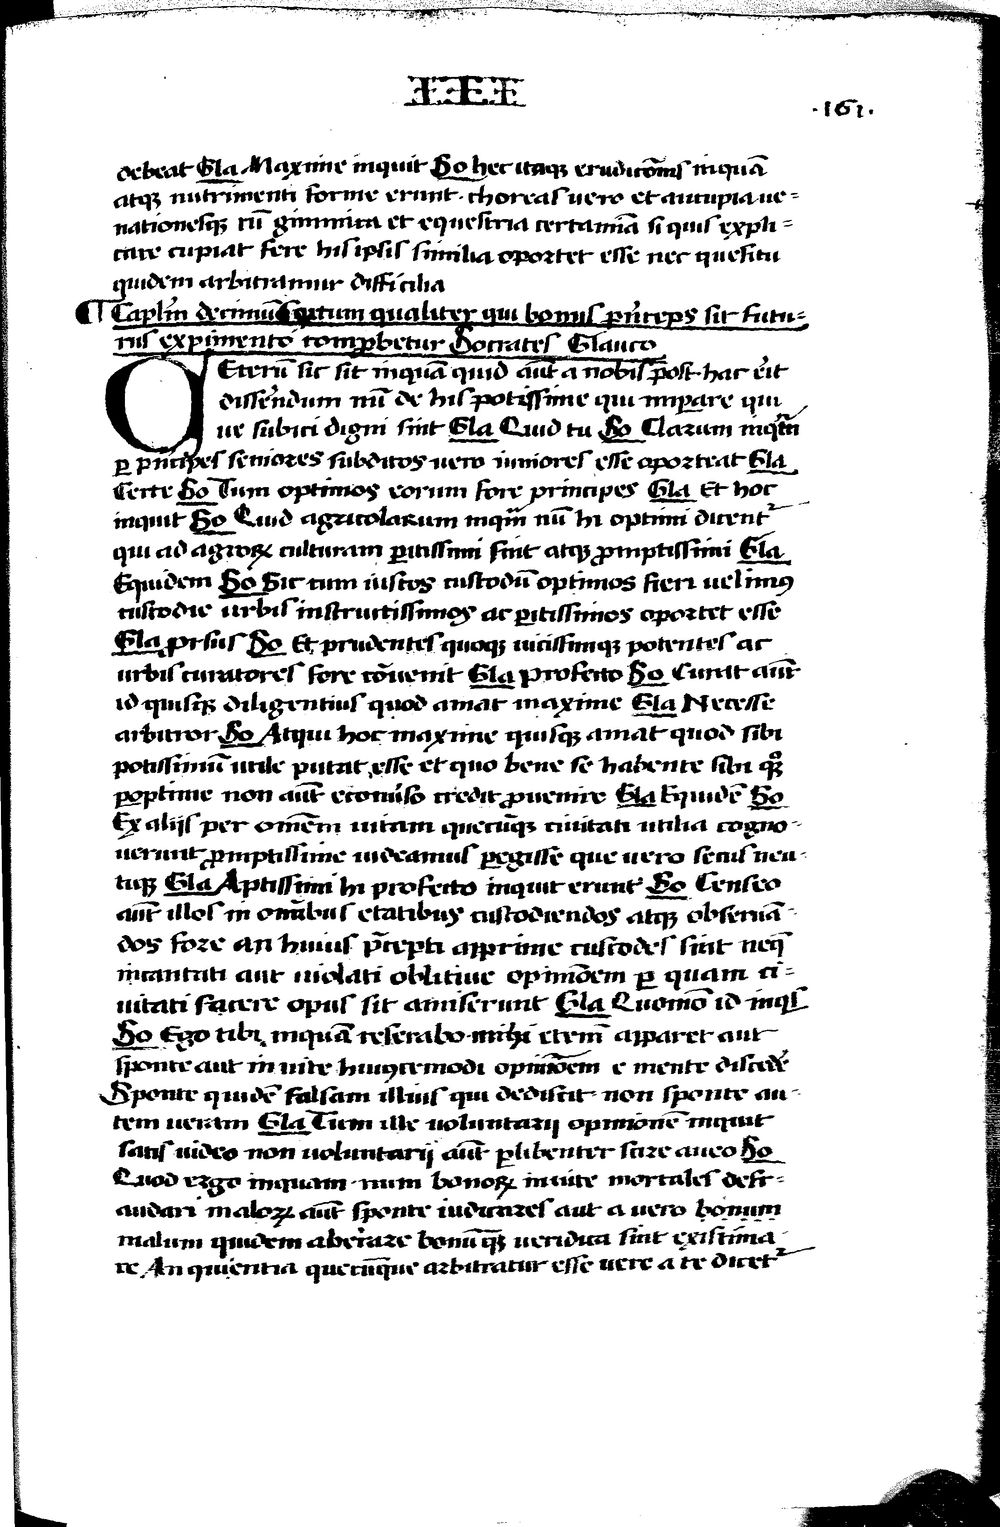 III
·161·
debeat Gla Maxime inquit So hec itaqꝫ erudicōnis inquā
atqꝫ nutrimenti forme erunt · choreas vero et aucupia ue=
nationesqꝫ cū gimnica et equestria certamīa si quis expli=
care cupiat fere his ipsis similia oportet esse nec quesitu
quidem arbitramur difficilia
¶ Caplm̄ decimū qualiter qui bonus prīceps sit futu=
rus expimento comprobetur Socrates Glauco
Ceterū sic sit inquā quid aūt a nobis post hac erit
disserendum nū de his potissime qui imꝑare qui
ue subici digni sint Gla Quid tu So Clarum inqm̄
ꝑ principes seniores subditos uero iuniores esse oporteat Gla
Certe So Tum optimos eorum fore principes Gla Et hoc
inquit So Quid agricolarum inqm̄ nū hi optimi dicent᷑
qui ad agroꝝ culturam ꝑitissimi sint atqꝫ ꝓmptissimi Gla
Equidem So Sic cum iustos custodū optimos fieri uelimꝰ
custodie urbis instructissimos ac ꝑitissimos oportet esse
Gla ꝓrsus So Et prudentes quoqꝫ uicissimqꝫ potentes ac
urbis curatores fore cōuenit Gla Profecto So Curat aūt
id quisqꝫ diligentius quod amat maxime Gla Necesse
arbitror So Atqui hoc maxime quisqꝫ amat quod sibi
potissimū utile putat esse et quo bene se habente sibi
ꝑoptime non aūt econuerso credit ꝓuenire Gla Equidē So
Ex aliis per omēm uitam quecūqꝫ ciuitati utilia cogno-
uerunt ꝓmptissime uideamus ꝑegisse que uero secus neu-
tiqꝫ Gla Aptissimi hi profecto inquit erunt So Censeo
aūt illos in omībus etatibus custodiendos atqꝫ obseruā-
dos fore an huius p̄cepti apprime custodes sint neqꝫ
incantati aut uiolati obliti ue opinōem ꝑ quam ci=
uitati facere opus sit amiserunt Gla Quomō id inqt
So Ego tibi inquā reserabo · mihi etenī apparet aut
sponte aut inuite huiuscemodi opinionem e mente discedere
Sponte quidē falsam illius qui dediscit · non sponte au-
tem ueram Gla Tum ille uoluntarii opinionē inquit
satis uideo non uoluntarii aūt ꝑlibenter scire aueo So
Quod ergo inquam · num bonoꝝ inuite mortales defr-
audari maloꝝ aūt sponte iudicares aut a uero bonum
malum quidem aberrare bonūqꝫ ueridica sint existima-
re An quientia quecūnque arbitratur esse uere a te dicet᷑